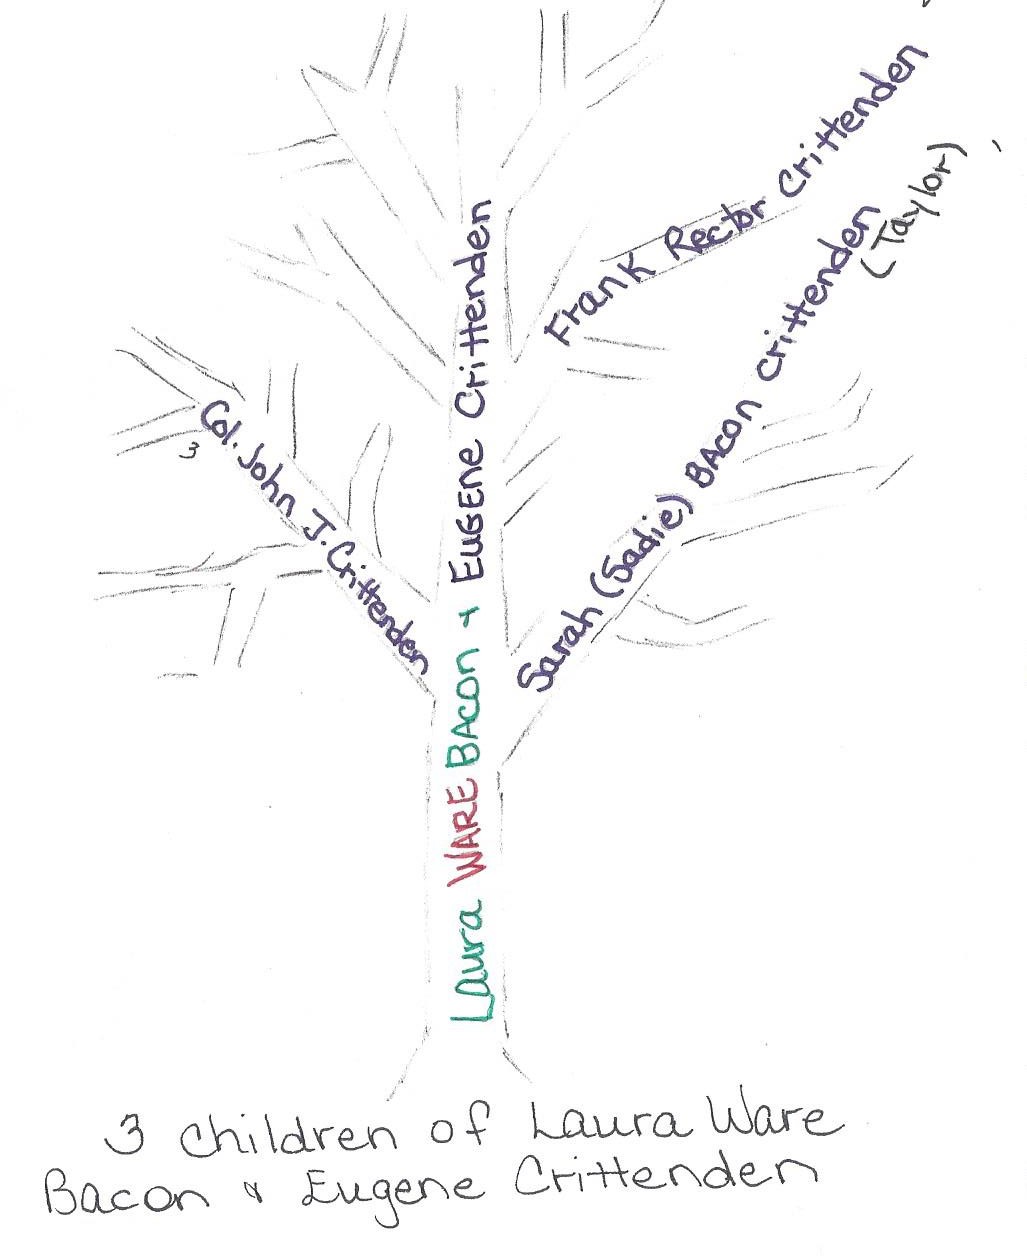 Frank Rector Crittenden
Sarah (Sadie) BACON Crittenden
(Taylor)
Col. John J. Crittenden
3
Laura WARE BACON & EUGENE Crittenden
3 children of Laura Ware
Bacon & Eugene Crittenden